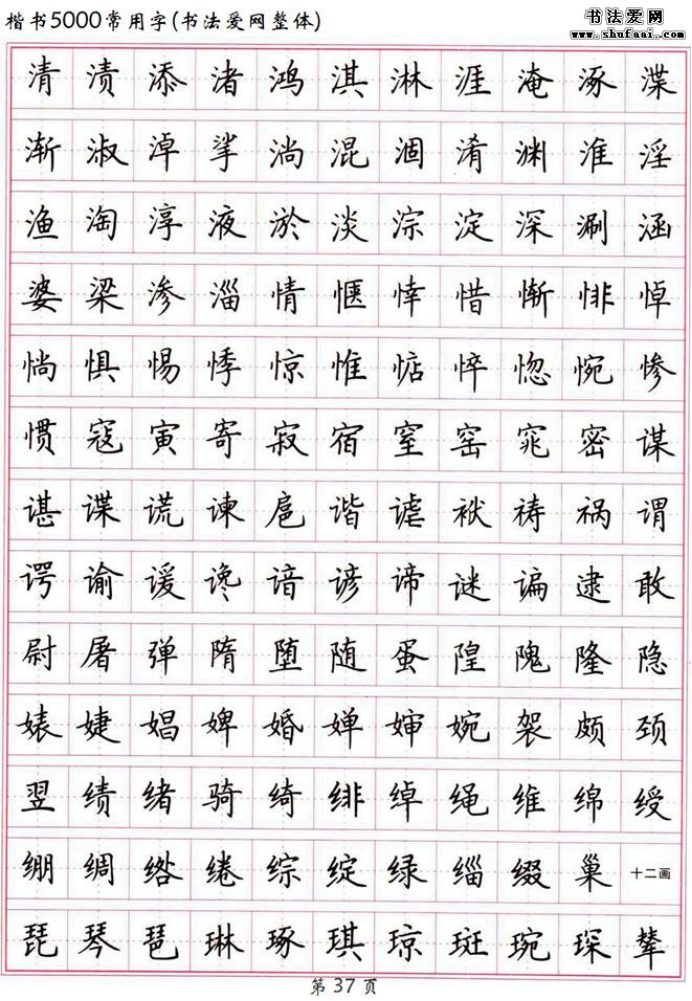 楷书5000常用字(书法爱网整体)
书法爱网
www.shufaai.com
清渍添渚鸿淇淋涯淹涿渫
渐淑淖挲淌混涸淆渊淮淫
渔淘淳液淤淡淙淀深涮涵
婆梁渗淄情惬悻惜惭悱悼
惝惧惕悸惊惟惦悴惚惋惨
惯寇寅寄寂宿窒窑窕密谋
谌谍谎谏扈谐谑袱祷祸谓
谔谕谖谗谙谚谛谜谝逮敢
尉屠弹隋堕随蛋隍隗隆隐
婊婕娼婢婚婵婶婉袈颇颈
翌绩绪骑绮绯绰绳维绵绶
绷绸绺绻综绽绿缁缀巢十二画
琵琴琶琳琢琪琼斑琬琛辇
第 37 页